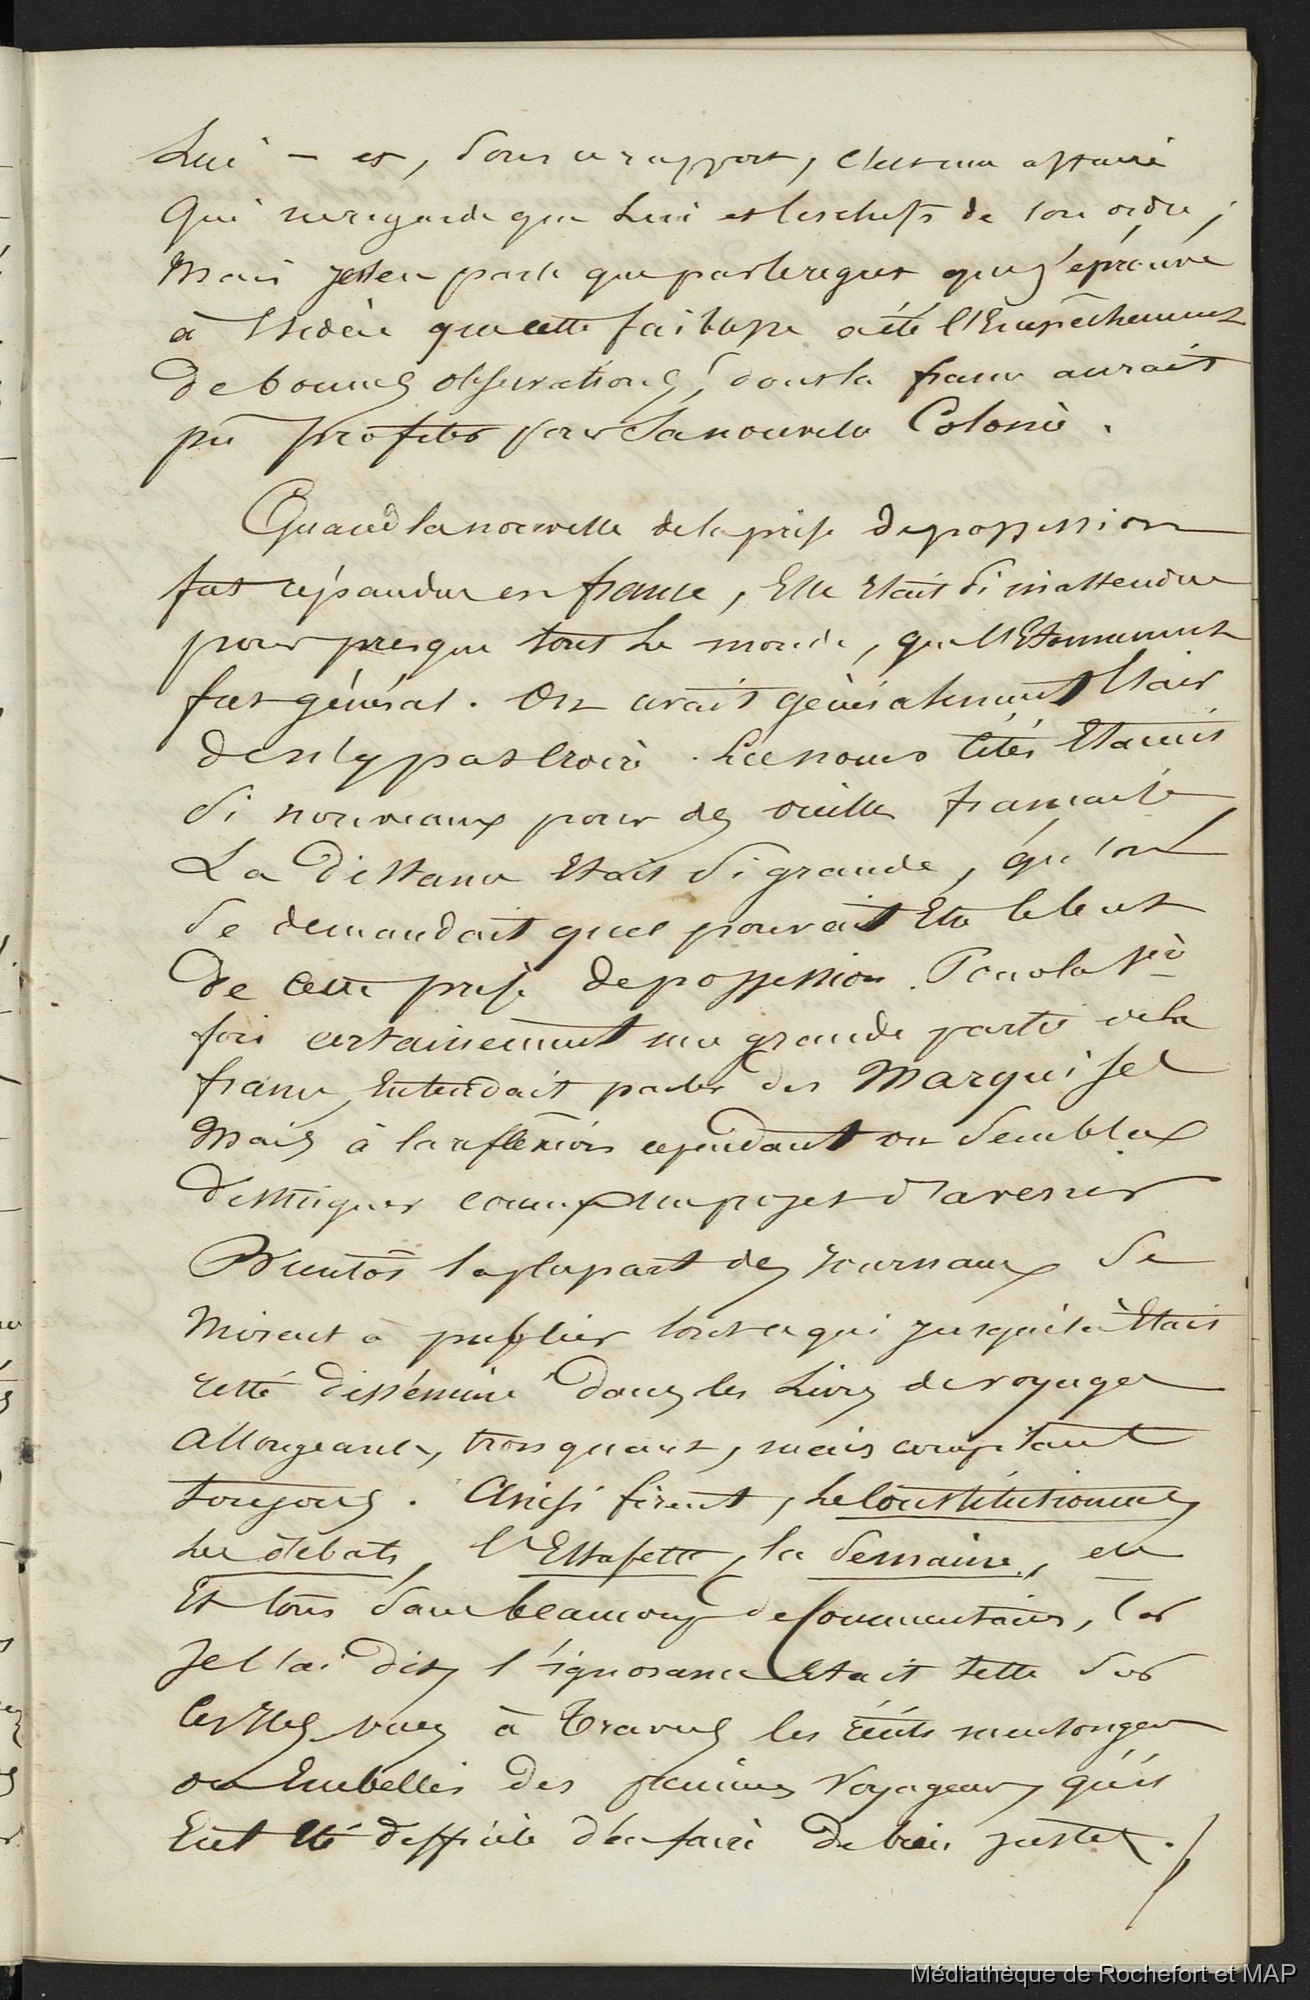 Lui – et, sous ce rapport, c'est une affaire
qui ne regarde que Lui et les chefs de son ordre ;
Mais je n'en parle que par le regret que j'éprouve
à l'idée que cette faiblesse a été l'Empêchement
De bonnes observations, dont la france aurait
pu profiter pour Sa nouvelle Colonie.
Quand la nouvelle de la prise de possession
fut répandue en france, Elle était si inattendue
pour presque tout Le monde, que l'Etonnement
fut général. On avait généralement l'air
de n'y pas croire. Les noms cités Etaient
Si nouveaux pour des oreilles francaises
La Distance Etait Si grande, qu'on
Se demandait quel pouvait Etre le but
De cette prise de possession. Pour la 1ère
fois certainement une grande partie de la
france Entendait parler des Marquises
Mais à la réflexion cependant on Sembla
Distinguer comme un projet d'avenir
Bientôt la plupart des Journaux Se
Mirent à publier tout ce qui jusque là Etait
resté disséminé dans les Livres de voyages
Allongeant, tronquant, mais compilant
toujours. Ainsi firent, Le Constitutionnel,
Les débats, l'Estafette, la Semaine, etc
Et tous Sans beaucoup de Commentaires, Car
Je l'ai dit, l'ignorance Etait telle Sur
les Iles, vues à Travers les récits mensongers
ou Embellis des premiers Voyageurs, qu'il
Eut Eté difficile d'en faire De bien justes.
Médiathèque de Rochefort et MAP